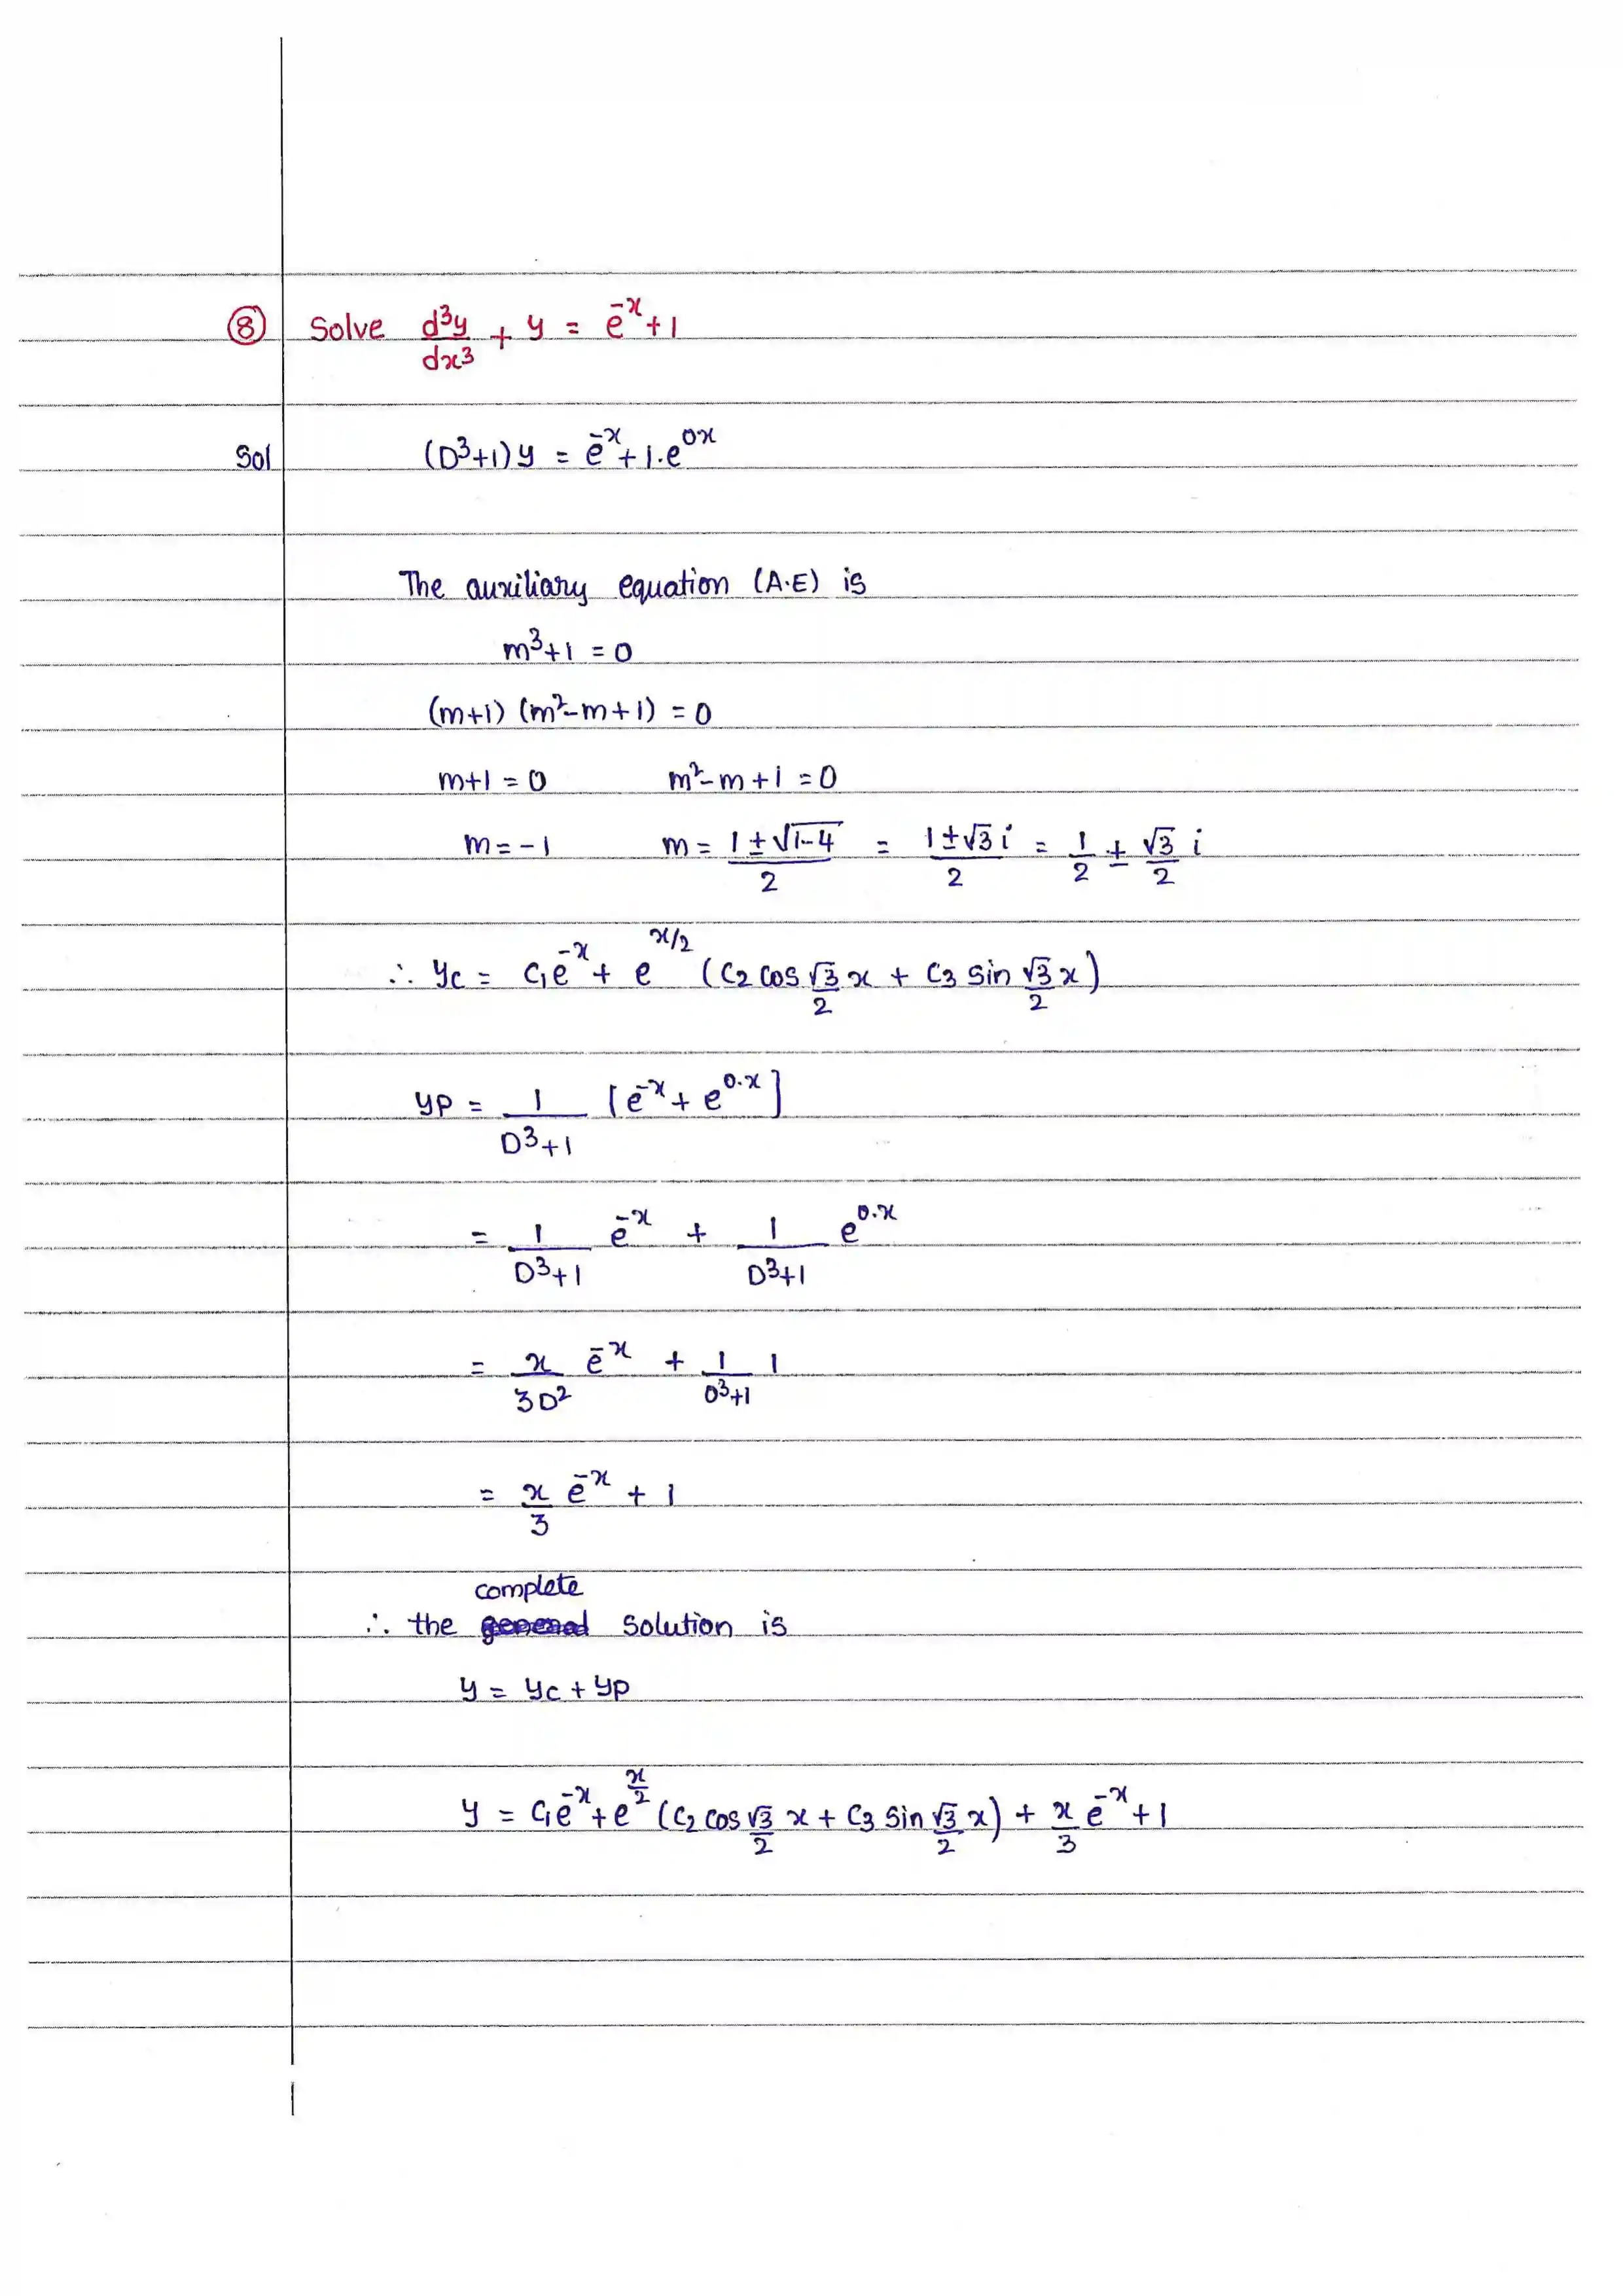 ⑧ Solve d³y/dx³ + y = e^-x + 1
Sol (D³+1)y = e^-x + 1·e^0x
The auxiliary equation (A.E) is
m³+1 = 0
(m+1) (m²-m+1) = 0
m+1 = 0 m²-m+1 = 0
m = -1 m = (1±√(1-4))/2 = (1±√3 i)/2 = 1/2 ± √3/2 i
∴ yc = C₁e^-x + e^x/2 (C₂ cos √3/2 x + C₃ sin √3/2 x)
yp = 1/(D³+1) [e^-x + e^0.x]
= 1/(D³+1) e^-x + 1/(D³+1) e^0.x
= x/3D² e^-x + 1/(D³+1) 1
= x/3 e^-x + 1
∴ the complete solution is
y = yc + yp
y = C₁e^-x + e^x/2 (C₂ cos √3/2 x + C₃ sin √3/2 x) + x/3 e^-x + 1